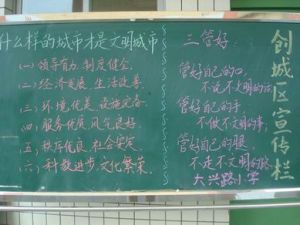 什么样的城市才是文明城市
(一)领导有力,制度健全.
(二)经济发展,生活改善.
(三)环境优美,设施完备.
(四)服务优质,风气良好.
(五)秩序优良,社会安定.
(六)科教进步,文化繁荣.
三管好:
管好自己的口,
不说不文明的话;
管好自己的手,
不做不文明的事;
管好自己的腿,
不走不文明的路
大兴路小学
创城区宣传栏